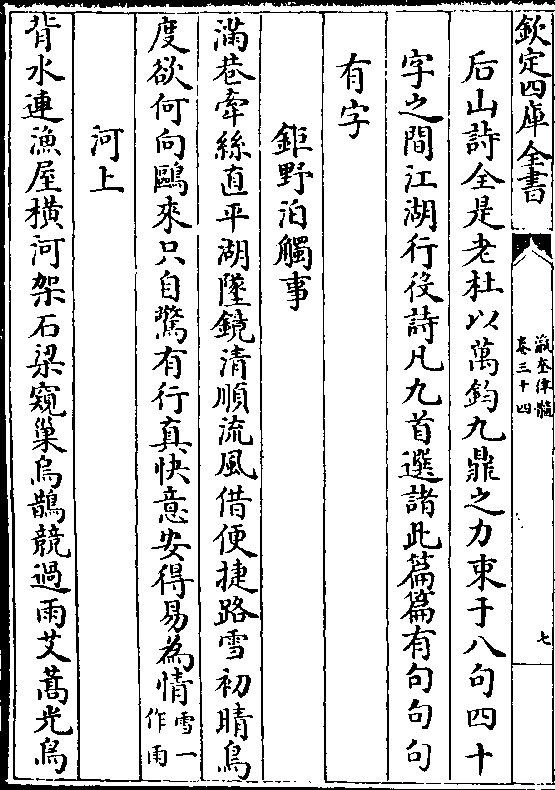 欽定四庫全書
瀛奎律髓
卷三十四
七
后山詩全是老杜以萬鈞九鼎之力束于八句四十
字之間江湖行役詩凡九首選諸此篇篇有句句句
有字
鉅野泊觸事
滿巷牽絲直平湖墜鏡清順流風借便捷路雪初晴鳥
度欲何向鷗來只自驚有行真快意安得易為情雪一
作雨
河上
背水連漁屋橫河架石梁窺巢烏鵲競過雨艾蒿光鳥